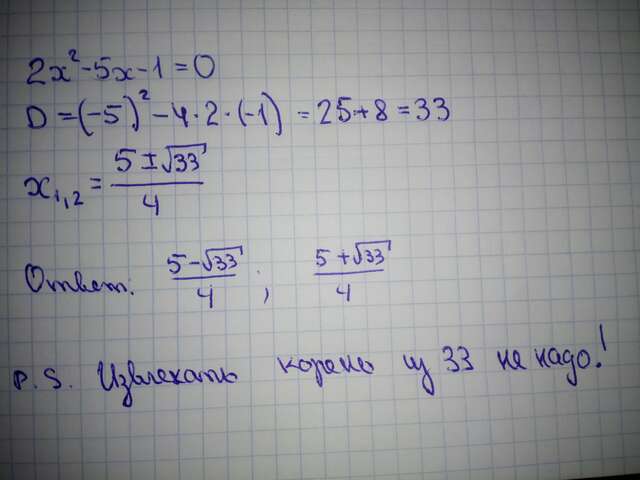 2x²-5x-1=0
D=(-5)²-4·2·(-1)=25+8=33
x₁,₂ = (5±√33)/4
Ответ: (5-√33)/4 ; (5+√33)/4
P.S. Извлекать корень из 33 не надо!